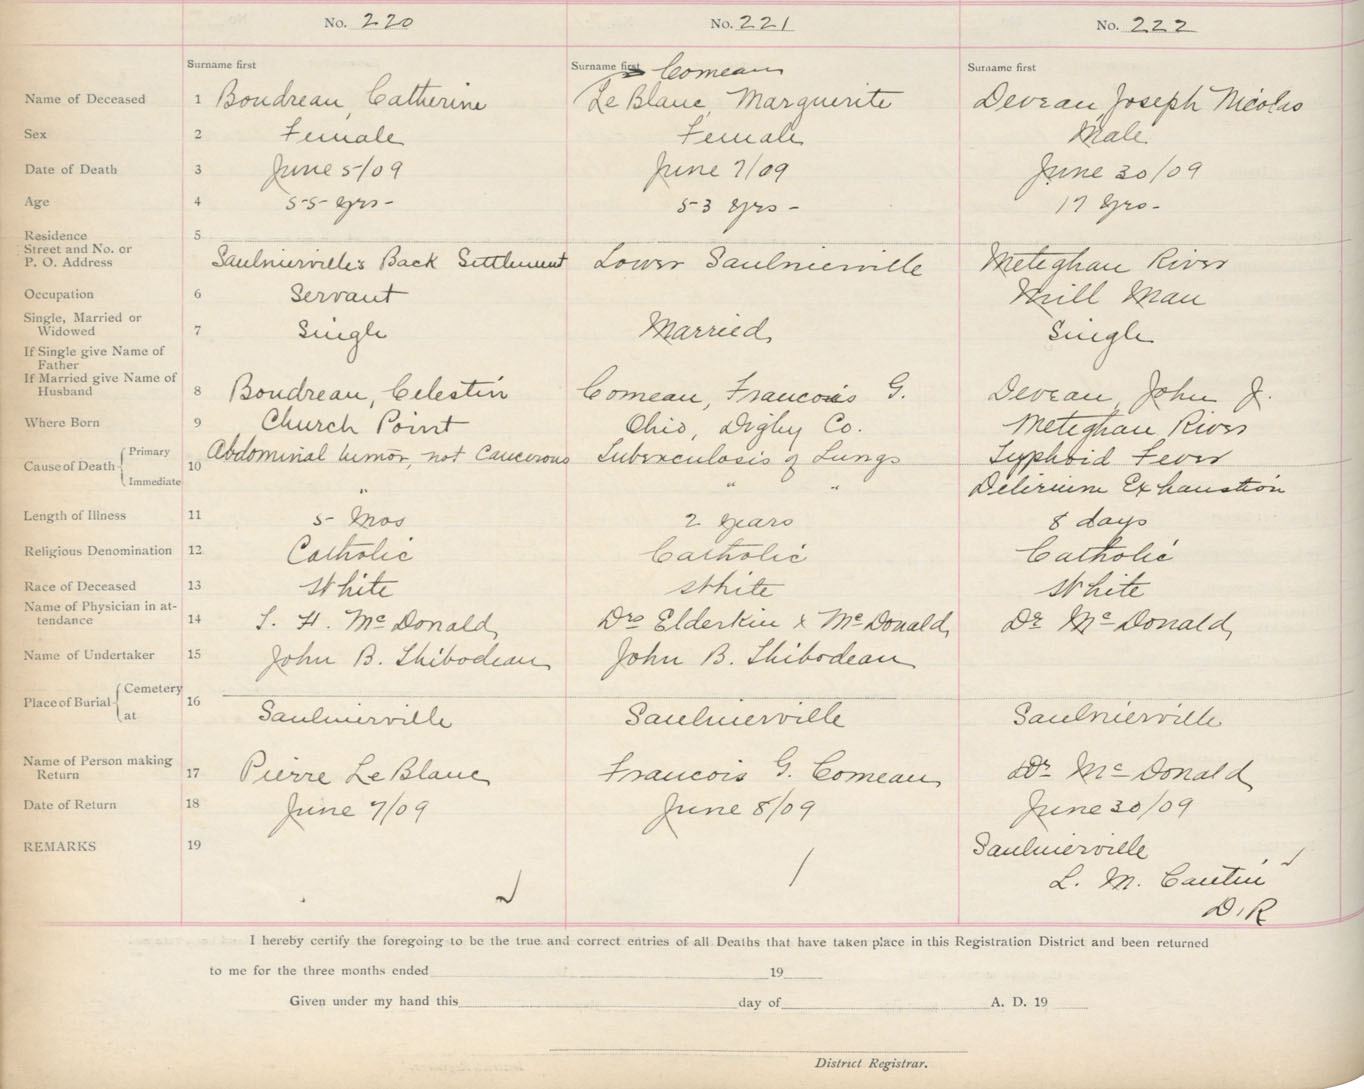 No. 220 No. 221 No. 222
Surname first Surname first Comeau Surname first
Name of Deceased 1 Boudreau, Catherine Le Blanc, Marguerite Deveau, Joseph Nicolas
Sex 2 Female Female Male
Date of Death 3 June 5/09 June 7/09 June 30/09
Age 4 55 yrs - 53 yrs - 17 yrs -
Residence 5
Street and No. or
P. O. Address Saulnierville's Back Settlement Lower Saulnierville Meteghan River
Occupation 6 Servant Mill Man
Single, Married or
Widowed 7 Single Married Single
If Single give Name of
Father
If Married give Name of
Husband 8 Boudreau, Celestin Comeau, Francois G. Deveau, John J.
Where Born 9 Church Point Ohio, Digby Co. Meteghan River
Cause of Death Primary 10 Abdominal tumor, not Cancerous Tuberculosis of Lungs Typhoid Fever
Immediate " " " Delirium Exhaustion
Length of Illness 11 5 Mos 2 years 8 days
Religious Denomination 12 Catholic Catholic Catholic
Race of Deceased 13 White White White
Name of Physician in at-
tendance 14 T. H. McDonald Drs Elderkin & McDonald Dr McDonald
Name of Undertaker 15 John B. Thibodeau John B. Thibodeau
Place of Burial Cemetery 16
at Saulnierville Saulnierville Saulnierville
Name of Person making
Return 17 Pierre Le Blanc Francois G. Comeau Dr McDonald
Date of Return 18 June 7/09 June 8/09 June 30/09
REMARKS 19 Saulnierville
L. M. Cantin
D.R
I hereby certify the foregoing to be the true and correct entries of all Deaths that have taken place in this Registration District and been returned
to me for the three months ended 19
Given under my hand this day of A. D. 19
District Registrar.